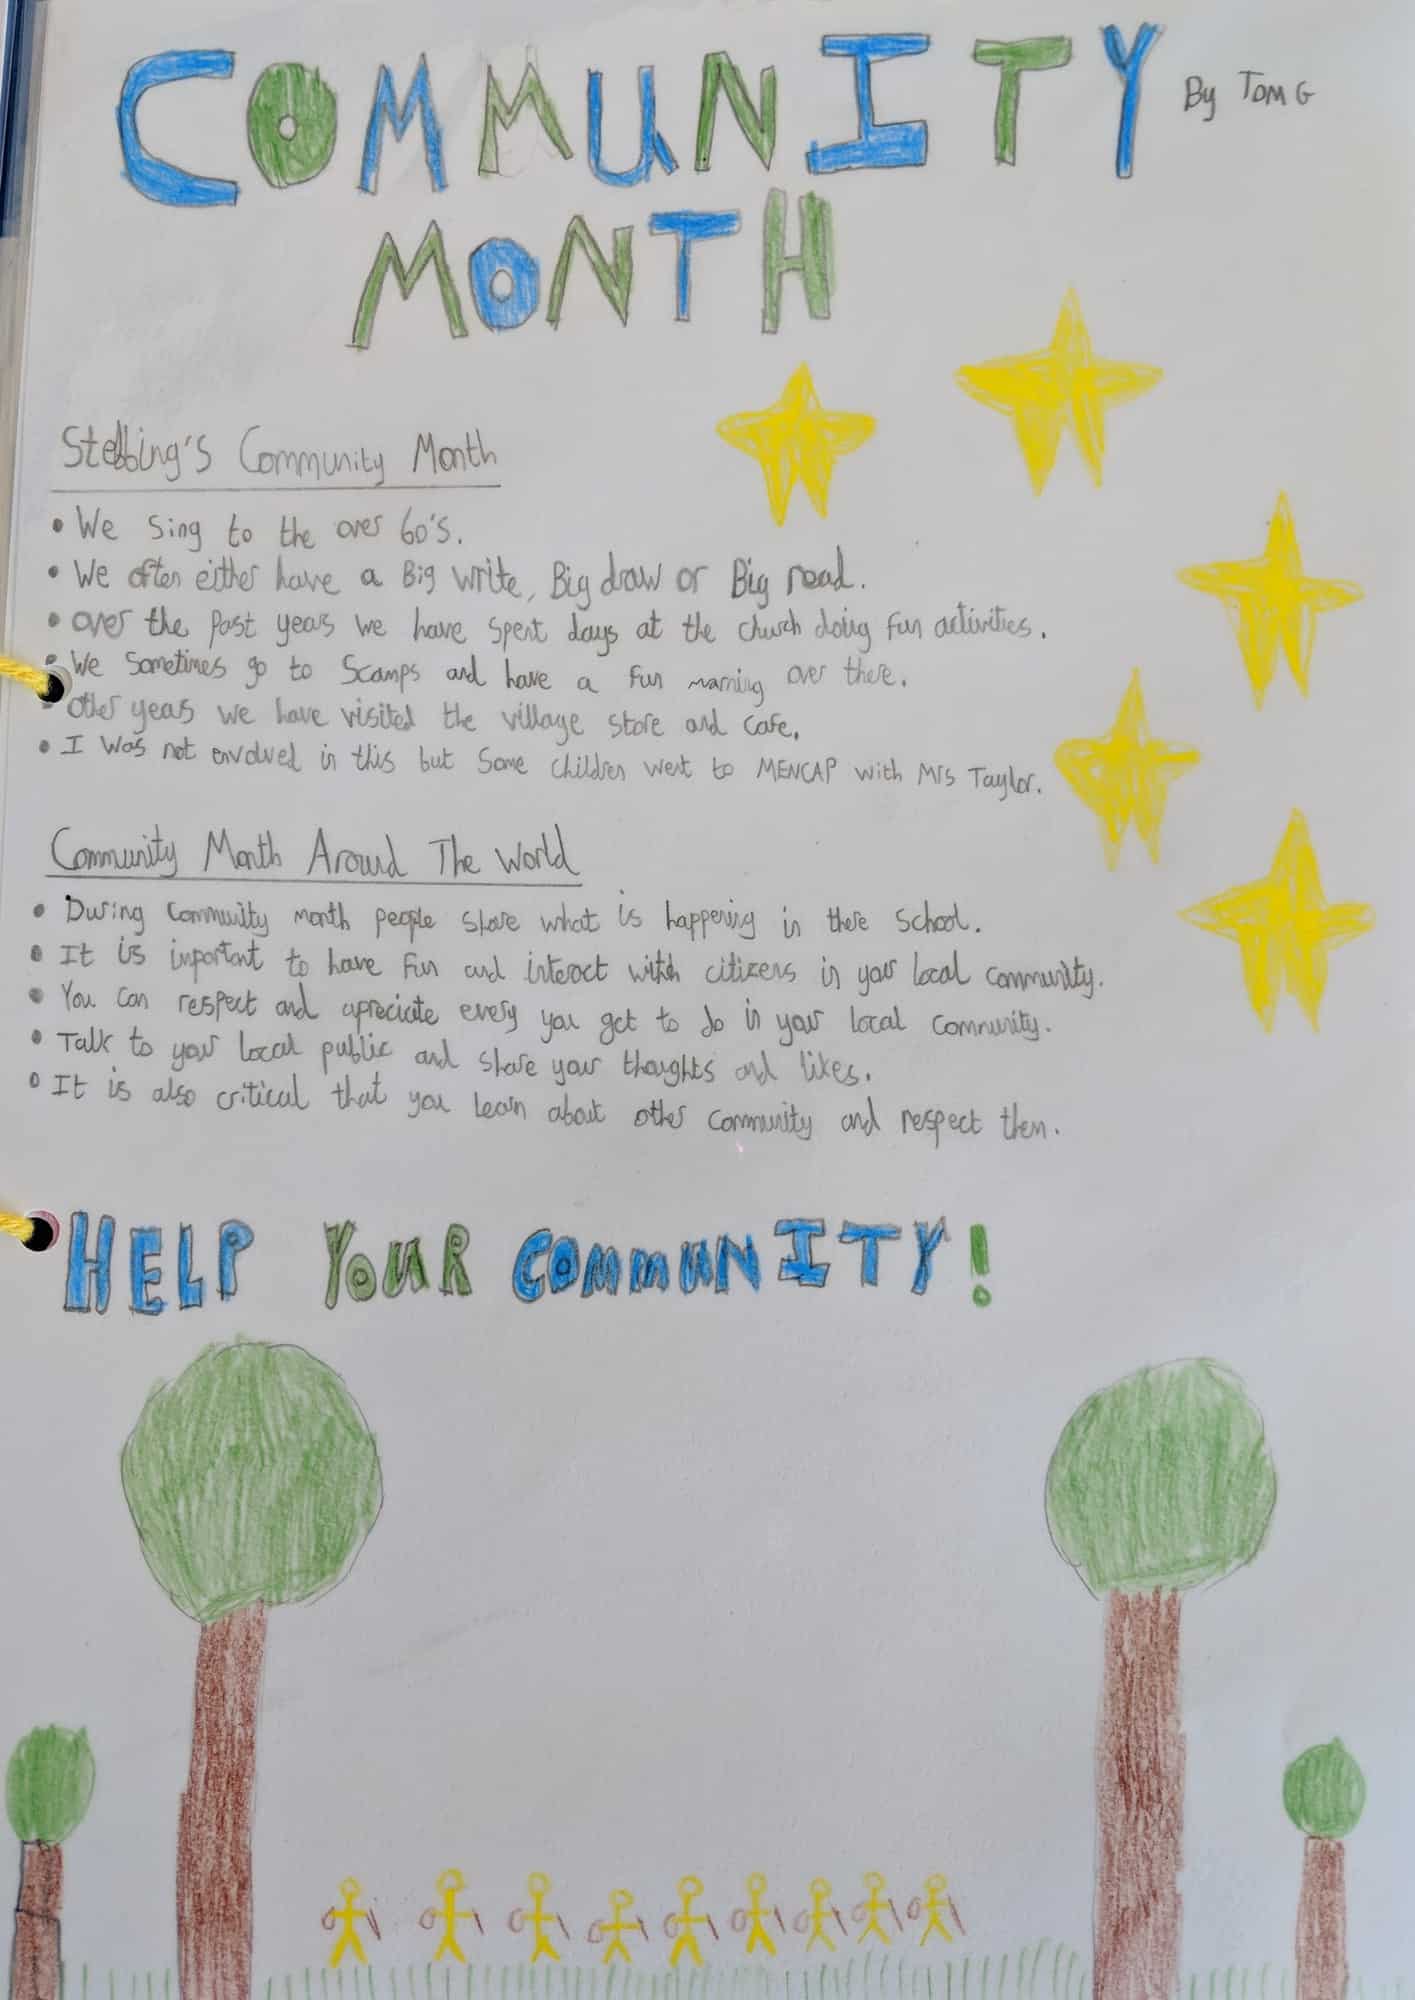 COMMUNITY By Tom G
MONTH
Stebbing's Community Month
• We sing to the over 60's.
• We often either have a Big write, Big draw or Big read.
• over the past years we have spent days at the church doing fun activities.
• We sometimes go to Scamps and have a fun morning over there.
• other years we have visited the village store and cafe.
• I was not envolved in this but some children went to MENCAP with Mrs Taylor.
Community Month Around The World
• During community month people share what is happening in there school.
• It is important to have fun and interact with citizens in your local community.
• You can respect and apreciate every you get to do in your local community.
• Talk to your local public and share your thoughts and likes.
• It is also critical that you learn about other community and respect them.
HELP YOUR COMMUNITY!